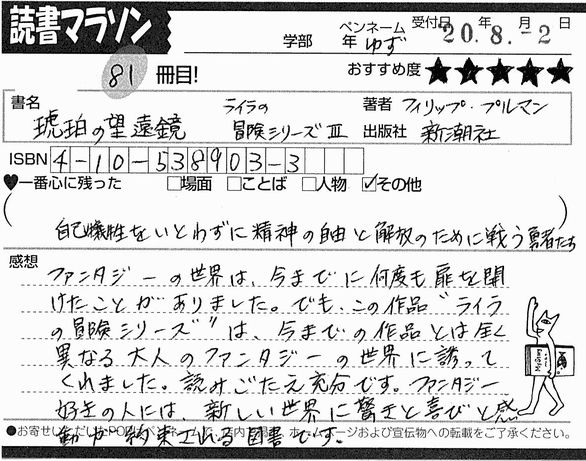 読書マラソン
学部 年 ペンネーム ゆず 受付日 20.年8.月-2日
81 冊目!
おすすめ度 ★★★★★
書名 琥珀の望遠鏡 ライラの冒険シリーズⅢ
著者 フィリップ・プルマン
出版社 新潮社
ISBN 4-10-538903-3
♥一番心に残った □場面 □ことば □人物 ☑その他
自己犠牲をいとわずに精神の自由と解放のために戦う勇者たち
感想
ファンタジーの世界は、今までに何度も扉を開
けたことがありました。でも、この作品"ライラ
の冒険シリーズ"は、今までの作品とは全く
異なる大人のファンタジーの世界に誘って
くれました。読みごたえ充分です。ファンタジー
好きの人には、新しい世界に驚きと喜びと感
動が約束される図書です。
●お寄せいただいたPOPはペンネームで、店内 、ホームページおよび宣伝物への転載をご了承ください。